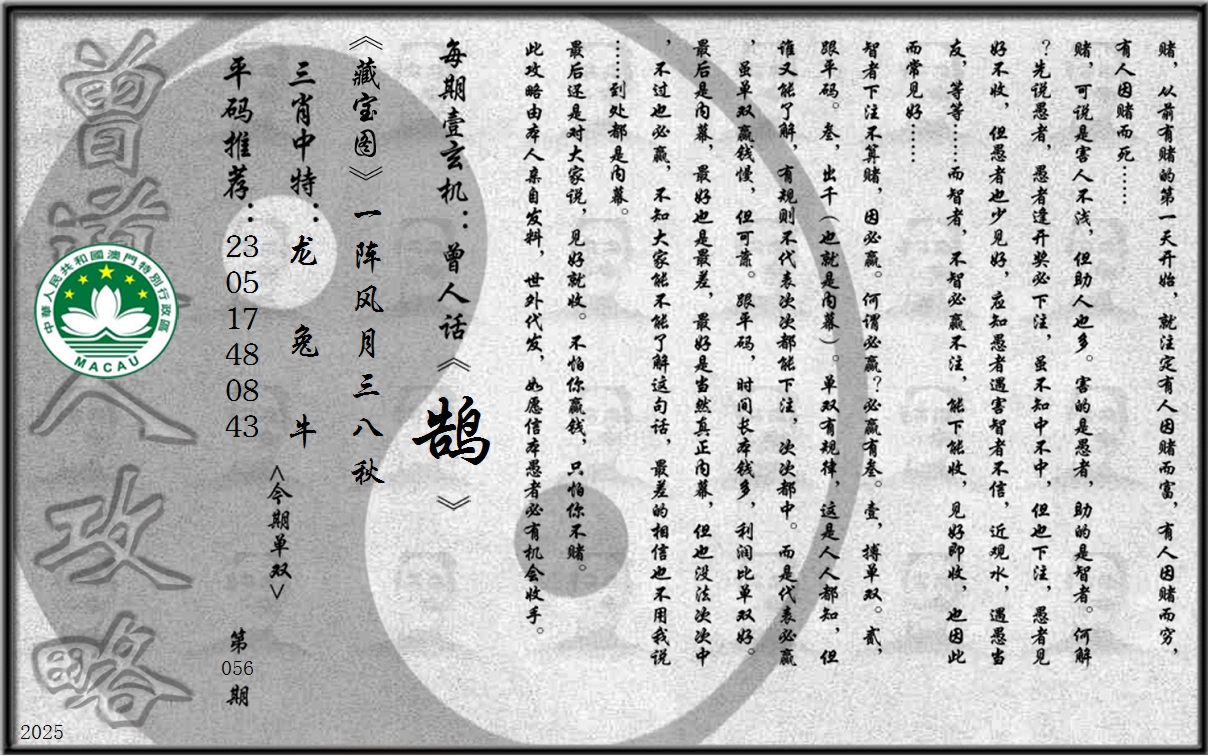 赌，从前有赌的第一天开始，就注定有人因赌而富，有人因赌而穷，
有人因赌而死……
赌，可说是害人不浅，但助人也多。害的是愚者，助的是智者。何解
？先说愚者，愚者逢开奖必下注，虽不知中不中，但也下注，愚者见
好不收，但愚者也少见好，应知愚者遇害智者不信，近观水，遇愚当
友，等等……而智者，不智必赢不注，能下能收，见好即收，也因此
而常见好……
智者下注不算赌，因必赢。何谓必赢？必赢有叁。壹，搏单双。贰，
跟平码。叁，出千（也就是内幕）。单双有规律，这是人人都知，但
谁又能了解，有规则不代表次次都能下注，次次都中。而是代表必赢
，虽单双赢钱慢，但可靠。跟平码，时间长本钱多，利润比单双好。
最后是内幕，最好也是最差，最好是当然真正内幕，但也没法次次中
，不过也必赢，不知大家能不能了解这句话，最差的相信也不用我说
……到处都是内幕。
最后还是对大家说，见好就收。不怕你赢钱，只怕你不赌。
此攻略由本人亲自发料，世外代发，如愿信本愚者必有机会收手。
每期壹玄机：曾人话《鹄》
《藏宝图》一阵风月三八秋
三肖中特：龙 兔 牛
<今期单双>
平码推荐：23 05 17 48 08 43
第056期
曾道人攻略
中華人民共和國澳門特別行政區
MACAU
2025